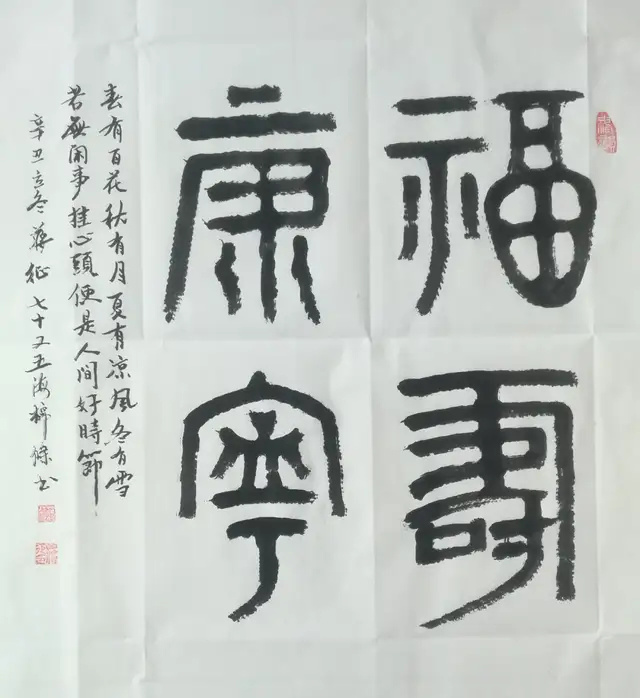 福壽
康寧
春有百花秋有月夏有凉風冬有雪
若無闲事挂心頭便是人间好時節
辛丑立冬蔣征七十又五海